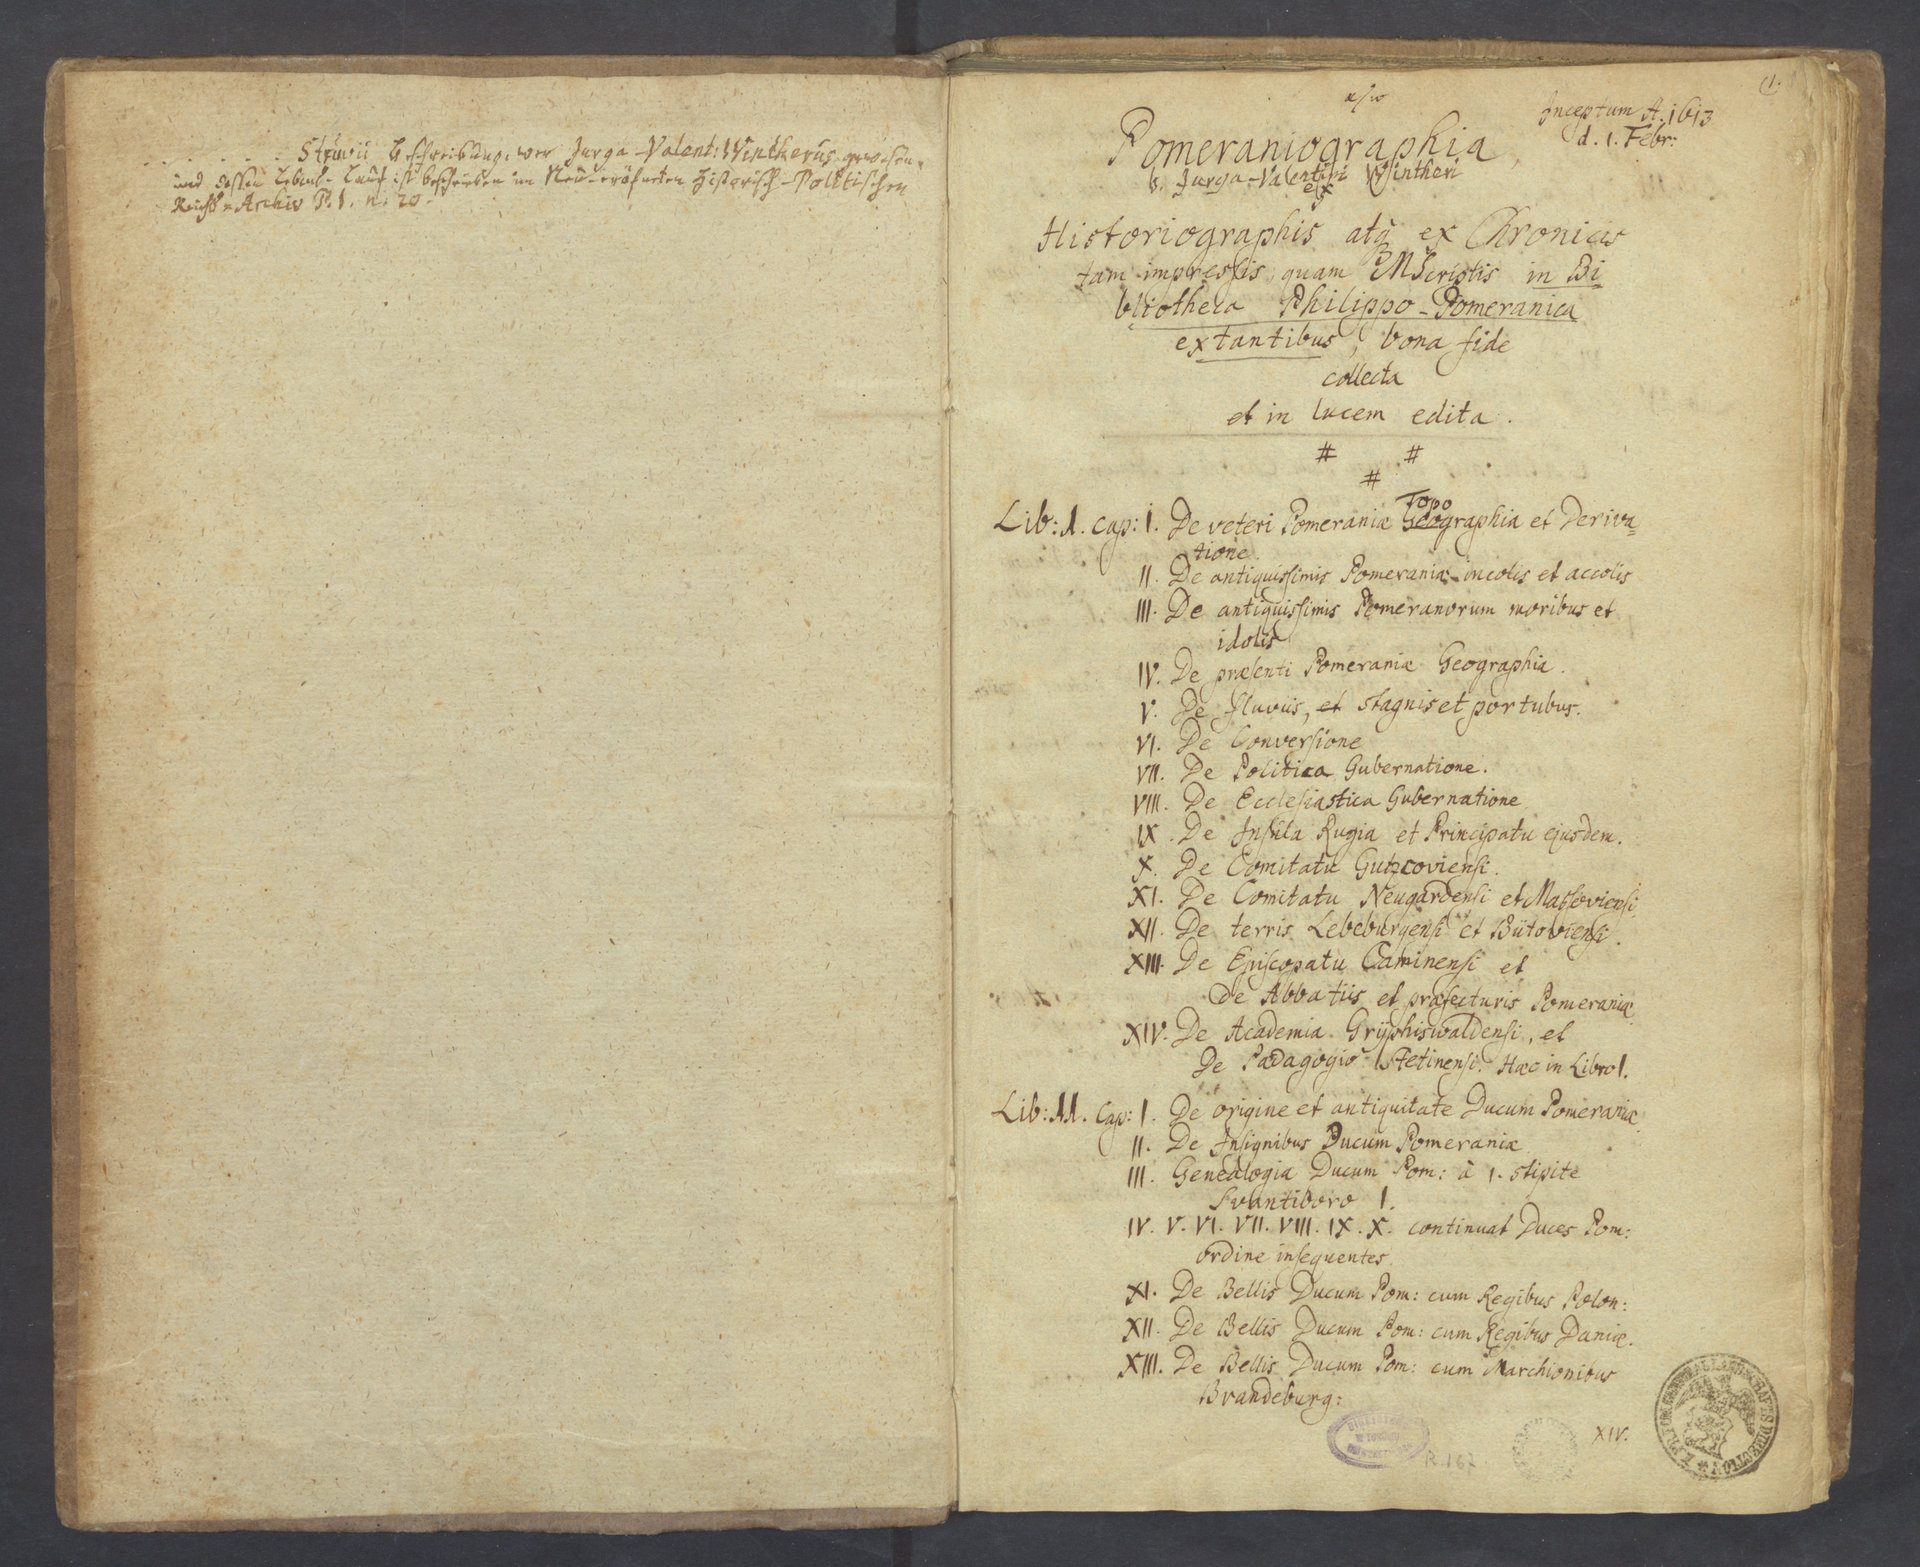 Struvii Beschreibung, wer Jurga-Valent: Wintherus gewesen,
und dessen Lebens-Lauf ist beschrieben im Neu-eröfneten Historisch-Politischen
Reichs-Archiv P. I. n. 20.
(1.
Inceptum A. 1613
d. 1. Febr:
Pomeraniographia,
b. Jurga-Valentini Wintheri
ex
Historiographis atq̃ ex Chronicis
tam impressis, quam MScriptis in Bi-
bliotheca Philippo-Pomeranica
extantibus, bona fide
collecta
et in lucem edita.
# #
#
Topo
Lib: I. cap: I. De veteri Pomeraniæ Geographia et Deriva=
tione.
II. De antiquissimis Pomeraniæ incolis et accolis
III. De antiquissimis Pomeranorum moribus et
idolis
IV. De præsenti Pomeraniæ Geographia.
V. De fluviis, et stagnis et portubus.
VI. De Conversione
VII. De Politica Gubernatione.
VIII. De Ecclesiastica Gubernatione
IX. De Insula Rugia et Principatu ejusdem.
X. De Comitatu Gutzcoviensi.
XI. De Comitatu Neugardensi et Massoviensi
XII. De terris Lebeburgensi et Bütoviensi.
XIII. De Episcopatu Caminensi et
De Abbatiis et præfecturis Pomeraniæ
XIV. De Academia Gryphiswaldensi, et
De Pædagogio Stetinensi. Hæc in Libro I.
Lib: II. Cap: I. De origine et antiquitate Ducum Pomeraniæ
II. De Insignibus Ducum Pomeraniæ
III. Genealogia Ducum Pom: à 1. stipite
Svantiboro I.
IV. V. VI. VII. VIII. IX. X. continuat Duces Pom:
ordine insequentes
XI. De Bellis Ducum Pom: cum Regibus Polon:
XII. De Bellis Ducum Pom: cum Regibus Daniæ.
XIII. De Bellis Ducum Pom: cum Marchionibus
Brandeburg:
XIV.
R. 167